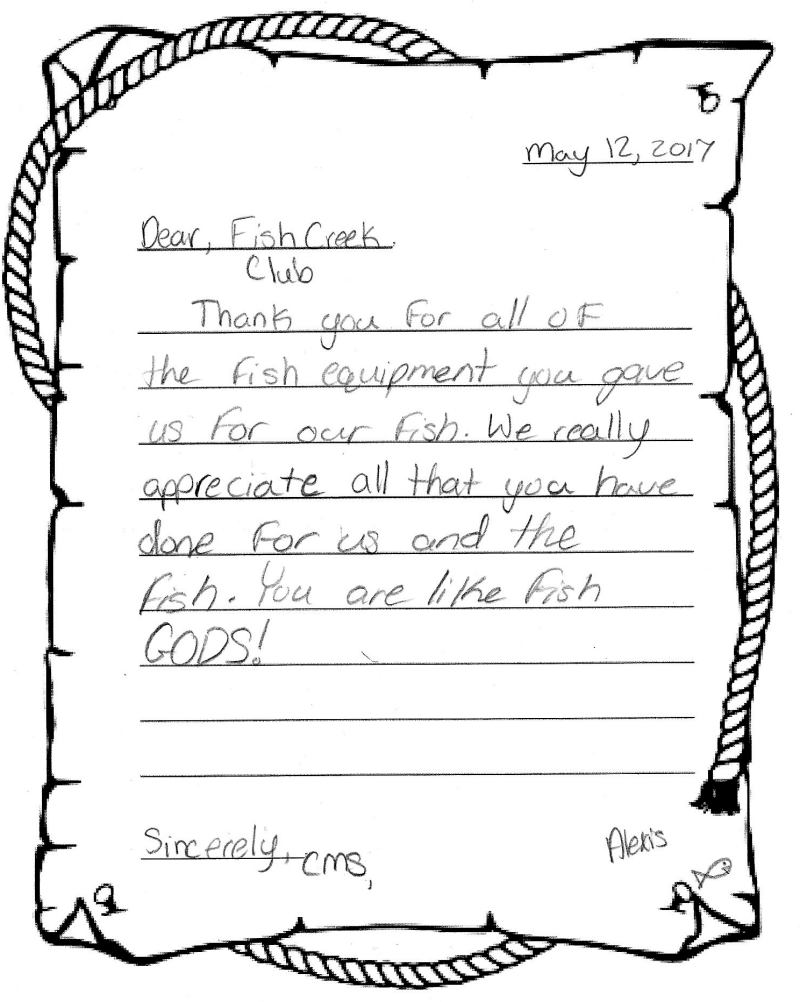 May 12, 2017
Dear, Fish Creek
Club
Thank you for all of
the fish equipment you gave
us for our fish. We really
appreciate all that you have
done for us and the
fish. You are like fish
GODS!
Sincerely, CMS,
Alexis